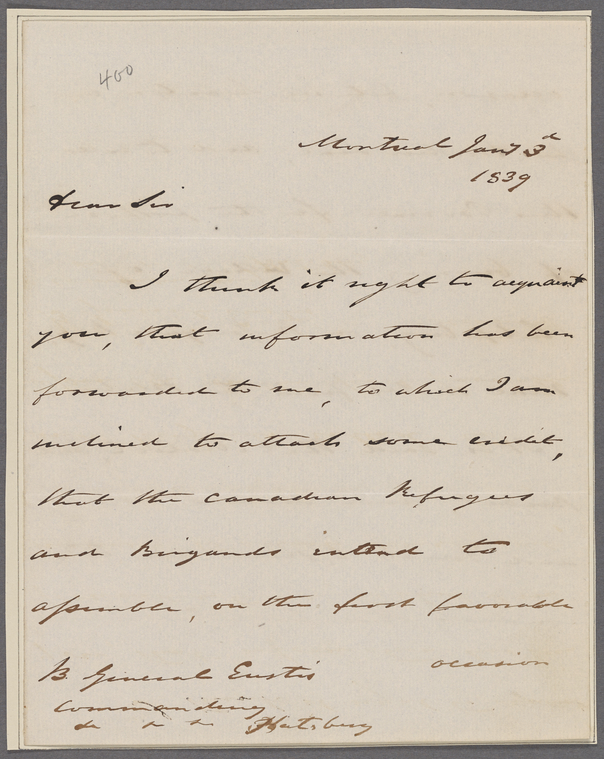 400
Montreal Jany 3d
1839
Dear Sir
I think it right to acquaint
you, that information has been
forwarded to me, to which I am
inclined to attach some credit,
that the Canadian Refugees
and Brigands intend to
assemble, on the first favorable
occasion
B. General Eustis
Commanding
&c &c &c